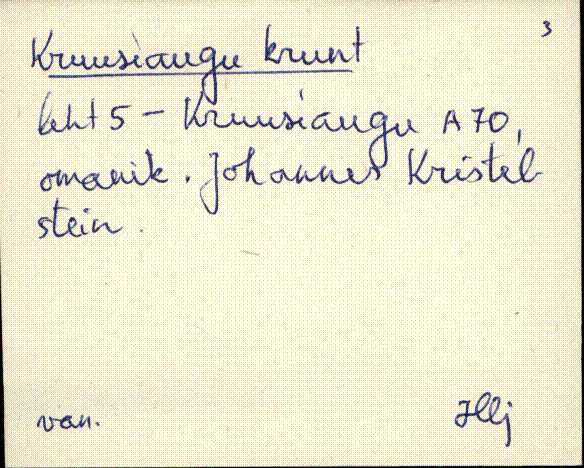 3
Kruusiaugu krunt
leht 5 - Kruusiaugu A 70,
omanik. Johannes Kristel-
stein.
van. Jllj